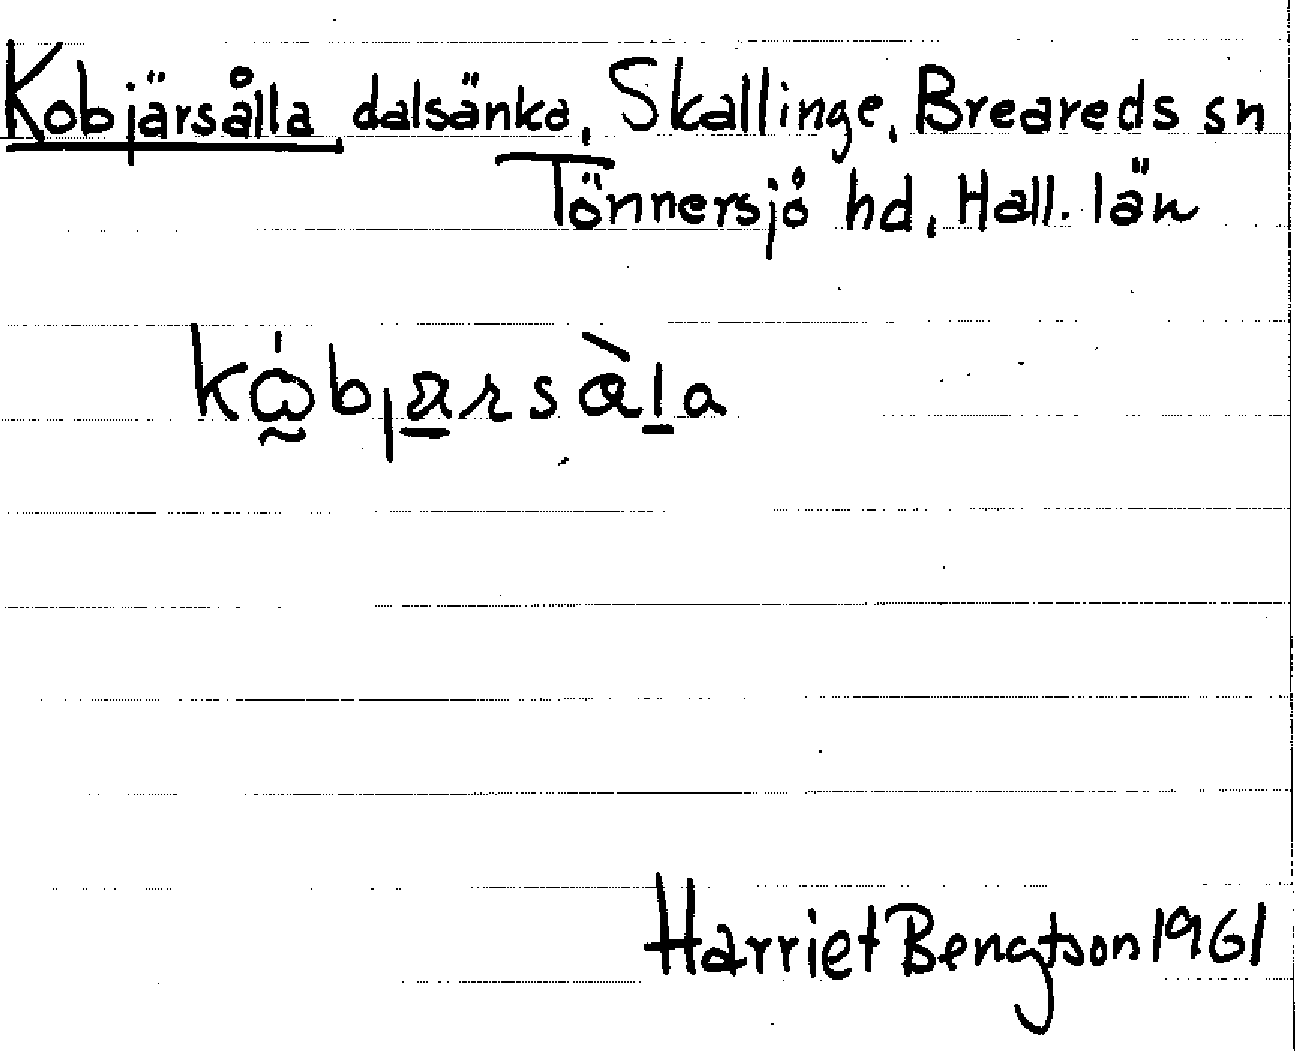 Kobjärsålla, dalsänka, Skallinge, Breareds sn
Tönnersjö hd, Hall. län
Harriet Bengtson 1961